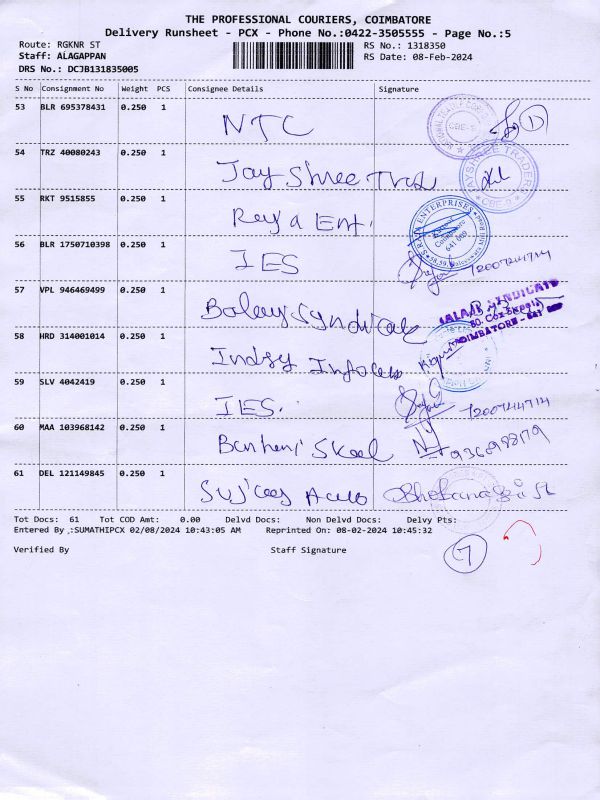 THE PROFESSIONAL COURIERS, COIMBATORE
Delivery Runsheet - PCX - Phone No.:0422-3505555 - Page No.:5
Route: RGKNR ST RS No.: 1318350
Staff: ALAGAPPAN RS Date: 08-Feb-2024
DRS No.: DCJB131835005
S No Consignment No Weight PCS Consignee Details Signature
53 BLR 695378431 0.250 1 NTC
54 TRZ 40080243 0.250 1 Jay Shree
JAYSHREE TRADERS CBE-9
55 RKT 9515855 0.250 1 Raya Ent.
ENTERPRISES Coimbatore 641 009
56 BLR 1750710398 0.250 1 IES
57 VPL 946469499 0.250 1 Balaji Syndicate
COIMBATORE
58 HRD 314001014 0.250 1
59 SLV 4042419 0.250 1 IES.
60 MAA 103968142 0.250 1
61 DEL 121149845 0.250 1
Tot Docs: 61 Tot COD Amt: 0.00 Delvd Docs: Non Delvd Docs: Delvy Pts:
Entered By :SUMATHIPCX 02/08/2024 10:43:05 AM Reprinted On: 08-02-2024 10:45:32
Verified By Staff Signature
7